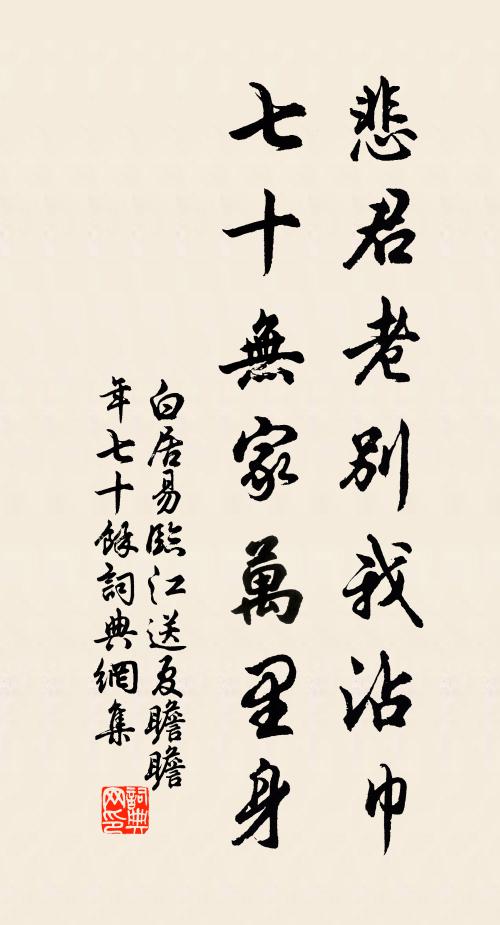 悲君老別我沾巾
七十無家萬里身
白居易臨江送夏瞻瞻
年七十餘詞典網集
詞典
网印